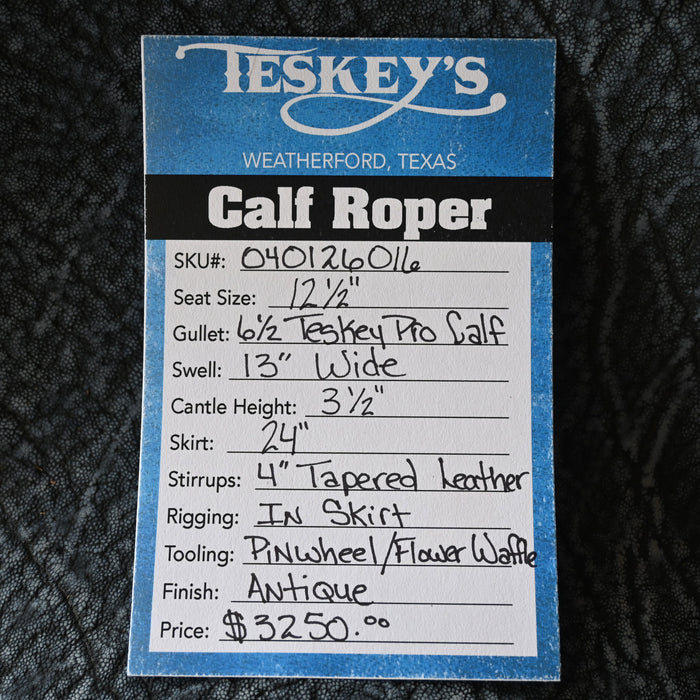 TESKEY'S
WEATHERFORD, TEXAS
Calf Roper
SKU#: 040126016
Seat Size: 12 1/2"
Gullet: 6 1/2 Teskey Pro Calf
Swell: 13" Wide
Cantle Height: 3 1/2"
Skirt: 24"
Stirrups: 4" Tapered Leather
Rigging: IN Skirt
Tooling: Pinwheel/Flower Waffle
Finish: Antique
Price: $3250.00